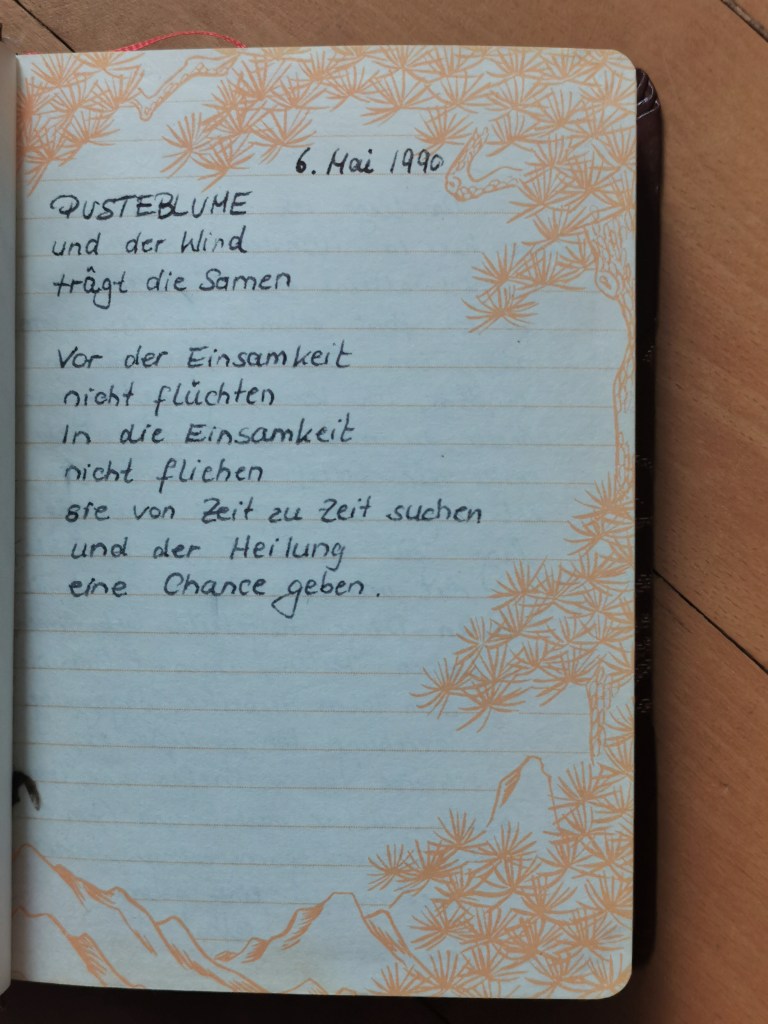 6. Mai 1990
PUSTEBLUME
und der Wind
trägt die Samen
Vor der Einsamkeit
nicht flüchten
In die Einsamkeit
nicht fliehen
sie von Zeit zu Zeit suchen
und der Heilung
eine Chance geben.